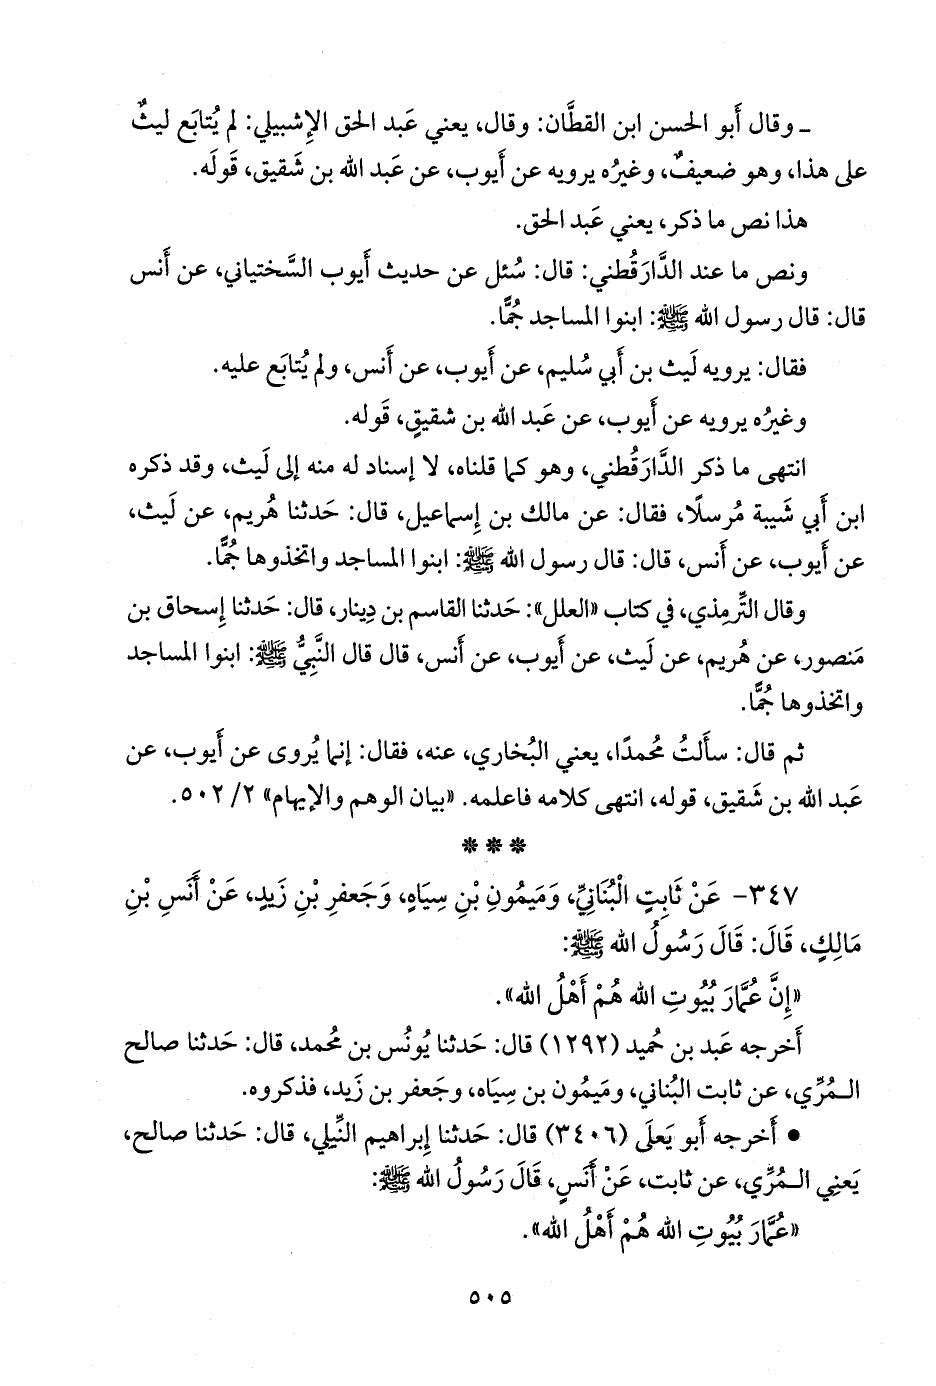 ـ وقال أَبو الحسن ابن القطَّان: وقال، يعني عَبد الحق الإِشبيلي: لم يُتابَع ليثٌ
على هذا، وهو ضعيفٌ، وغيرُه يرويه عن أَيوب، عن عَبد الله بن شَقيق، قَولَه.
هذا نص ما ذكر، يعني عَبد الحق.
ونص ما عند الدَّارَقُطني: قال: سُئل عن حديث أَيوب السَّختياني، عن أَنس
قال: قال رسول الله ﷺ: ابنوا المساجد جُمًّا.
فقال: يرويه لَيث بن أَبي سُليم، عن أَيوب، عن أَنس، ولم يُتابَع عليه.
وغيرُه يرويه عن أَيوب، عن عَبد الله بن شقيقٍ، قَوله.
انتهى ما ذكر الدَّارَقُطني، وهو كما قلناه، لا إسناد له منه إلى لَيث، وقد ذكره
ابن أَبي شَيبة مُرسلًا، فقال: عن مالك بن إِسماعيل، قال: حَدثنا هُريم، عن لَيث،
عن أَيوب، عن أَنس، قال: قال رسول الله ﷺ: ابنوا المساجد واتخذوها جُمًّا.
وقال التِّرمِذي، في كتاب «العلل»: حَدثنا القاسم بن دِينار، قال: حَدثنا إِسحاق بن
مَنصور، عن هُريم، عن لَيث، عن أَيوب، عن أَنس، قال قال النَّبيُّ ﷺ: ابنوا المساجد
واتخذوها جُمًّا.
ثم قال: سأَلتُ مُحمدًا، يعني البُخاري، عنه، فقال: إنما يُروى عن أَيوب، عن
عَبد الله بن شَقيق، قوله، انتهى كلامه فاعلمه. «بيان الوهم والإيهام» ٢/ ٥٠٢.
❋ ❋ ❋
٣٤٧- عَنْ ثَابِتٍ الْبُنَانِيِّ، وَمَيمُونِ بْنِ سِيَاهٍ، وَجَعفرِ بْنِ زَيدٍ، عَنْ أَنَسِ بْنِ
مَالِكٍ، قَالَ: قَالَ رَسُولُ الله ﷺ:
«إِنَّ عُمَّارَ بُيُوتِ الله هُمْ أَهْلُ الله».
أَخرجه عَبد بن حُميد (١٢٩٢) قال: حَدثنا يُونُس بن مُحمد، قال: حَدثنا صالح
الـمُرِّي، عن ثابت البُناني، ومَيمُون بن سِيَاه، وجَعفر بن زَيد، فذكروه.
• أَخرجه أَبو يَعلَى (٣٤٠٦) قال: حَدثنا إِبراهيم النِّيلي، قال: حَدثنا صالح،
يَعنِي الـمُرِّي، عن ثابت، عَنْ أَنَسٍ، قَالَ رَسُولُ الله ﷺ:
«عُمَّارَ بُيُوتِ الله هُمْ أَهْلُ الله».
٥٠٥